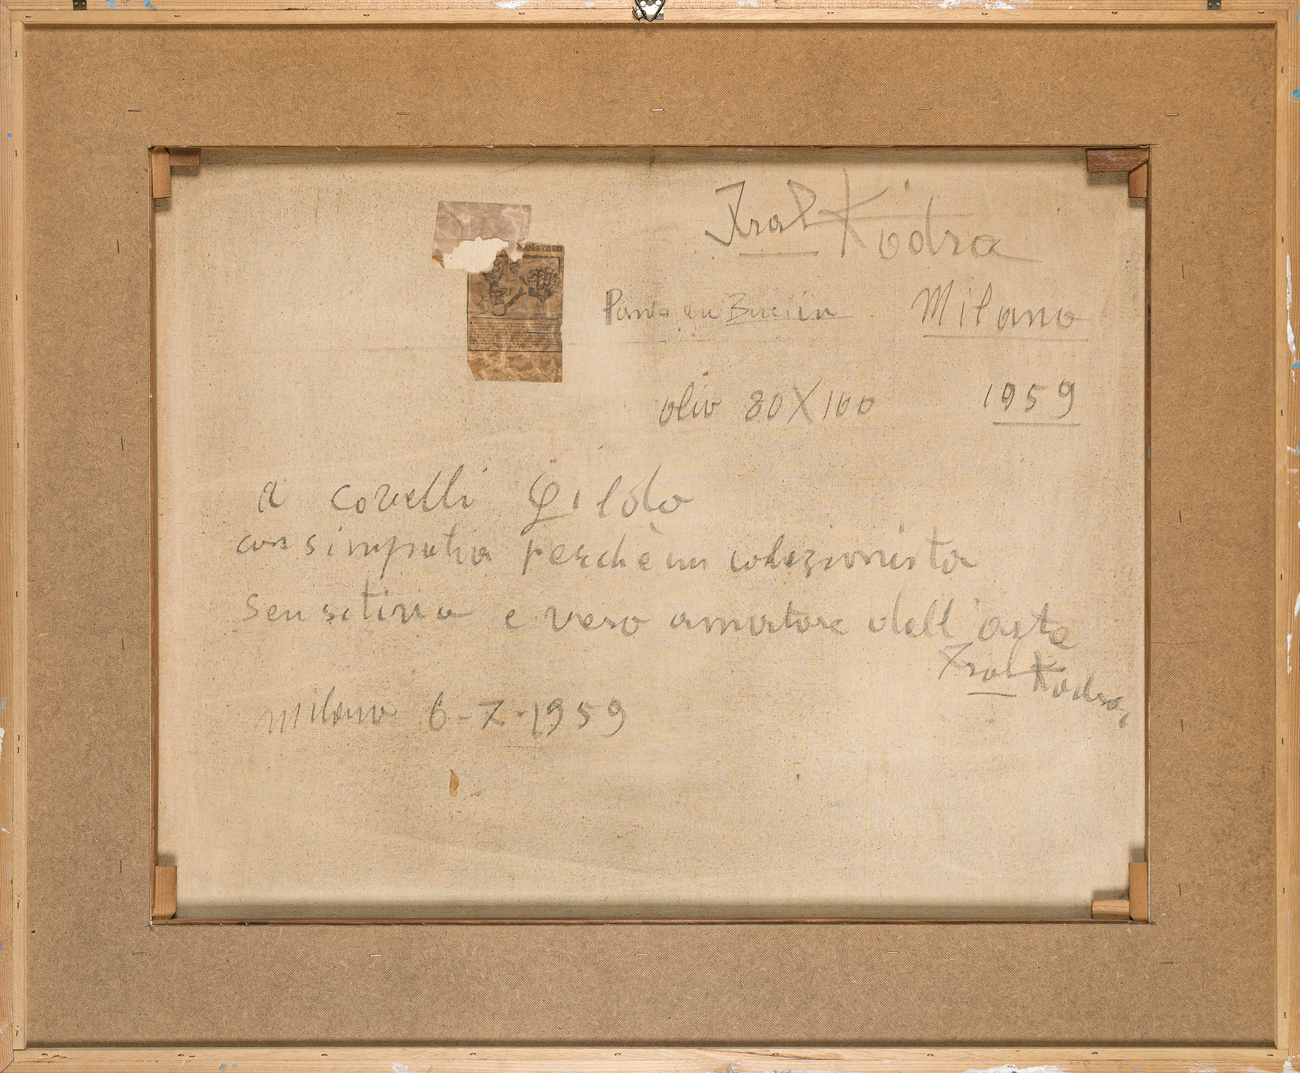 Ibrahim Kodra
Milano
olio 80X100 1959
a Covelli Gildo
con simpatia perchè un colezionista
sensitivo e vero amatore dell'arte
Kodra
Milano 6-7-1959